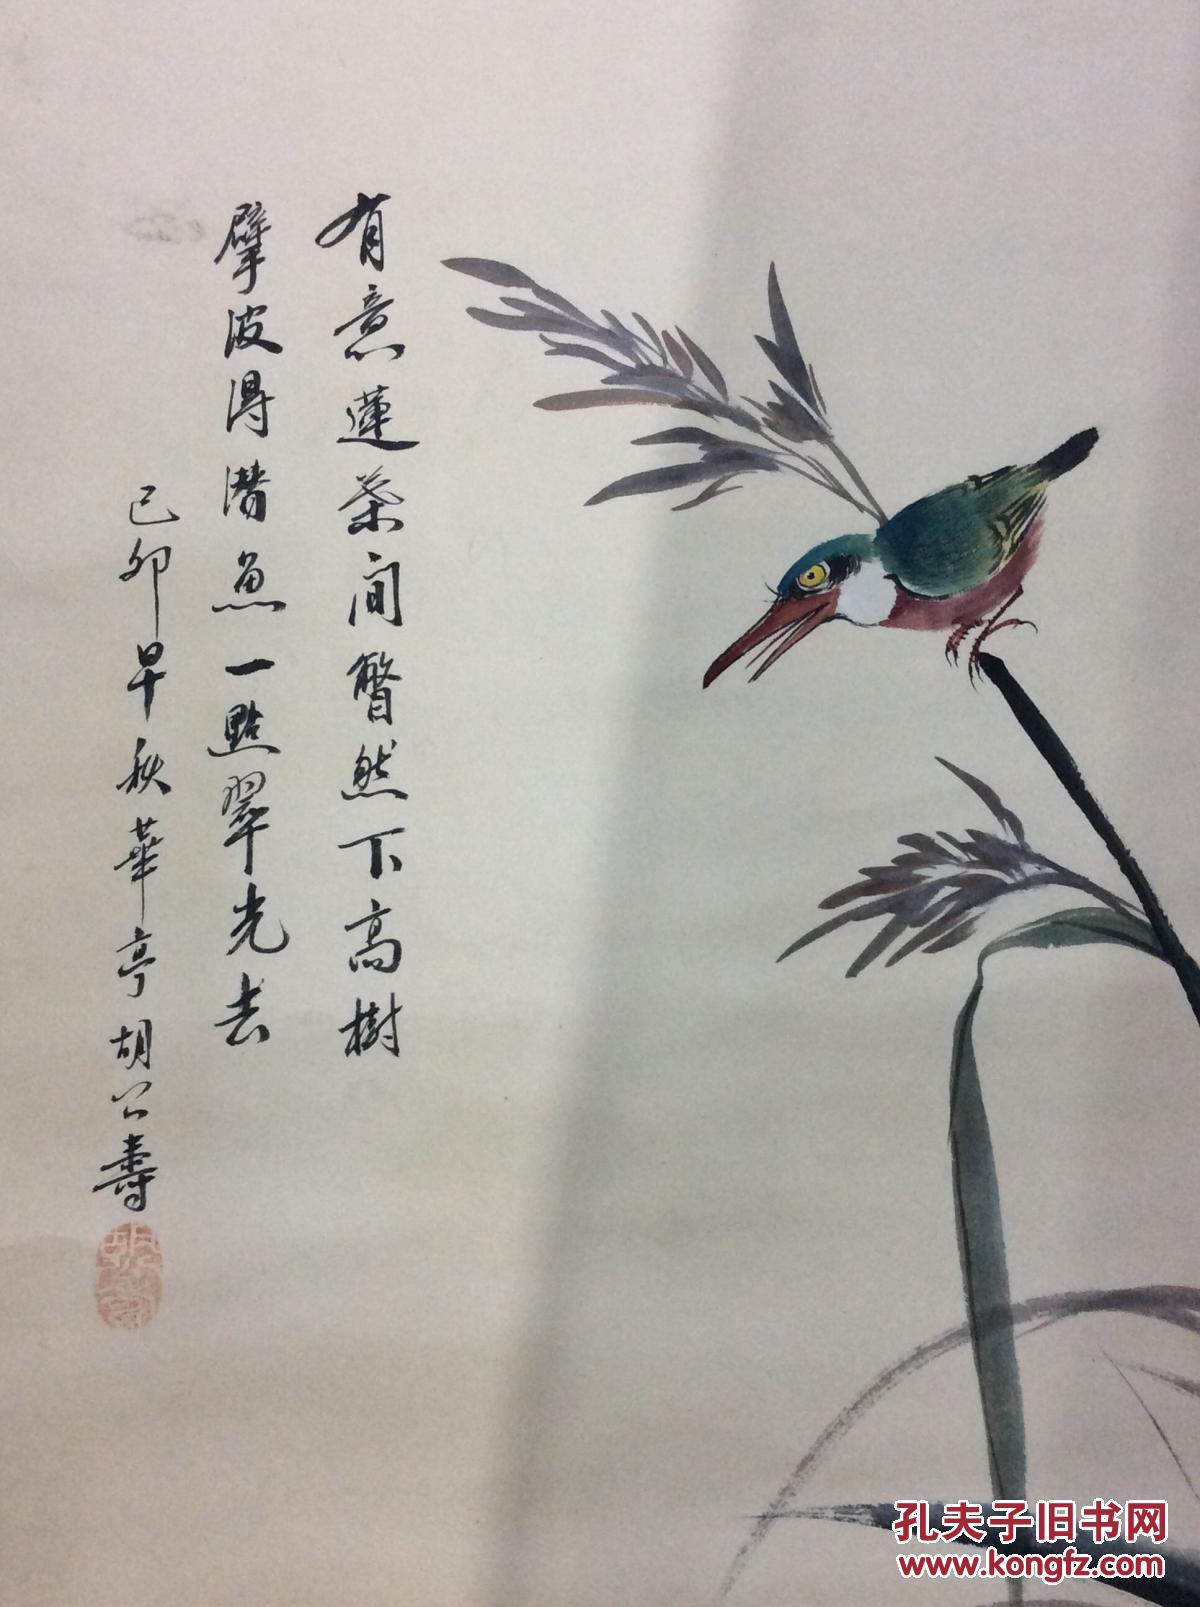 有意蓮葉间瞥然下高樹
擘波得潜魚一點翠光去
己卯早秋華亭胡公壽
孔夫子旧书网
www.kongfz.com